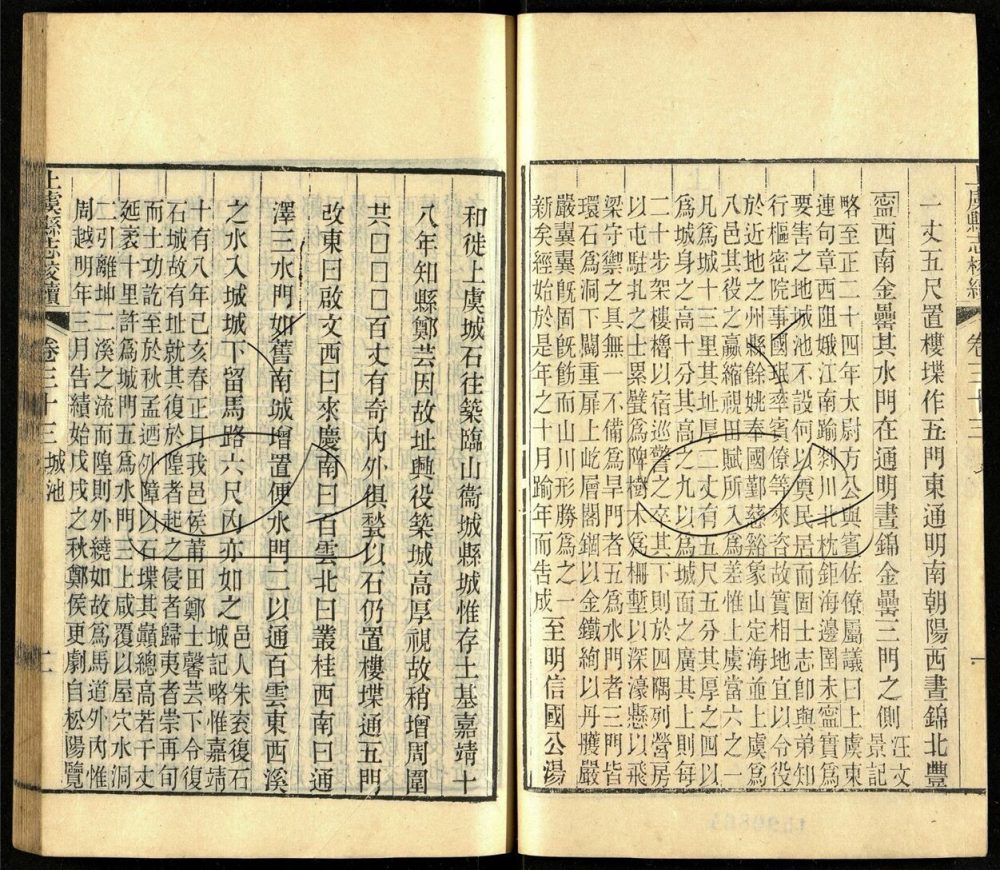 上虞縣志校續 卷三十三
一丈五尺置樓堞作五門東通明南朝陽西書錦北豐
寍西南金罍其水門在通明書錦金罍三門之側 汪文
景記
略至正二十四年太尉方公與賓佐僚屬議曰上虞東
連句章西阻娥江南踰剡川北枕鉅海邊圉未寍實爲
要害之地城池不設何以奠民居而固士志卽與弟知
行樞密院事國珉率賓僚等來咨故實相地宜以令役
於近地之州縣餘姚奉國鄞慈谿象山定海並上虞爲
八邑其役之贏縮視田賦所入爲差惟上虞當六之一
凡爲城十三里其址厚二丈有五尺五分其厚之四以
爲城身之高十分其高之九以爲城面之廣其上則每
二十步架樓櫓以宿巡警之卒其下則於四隅列營房
以屯駐扎之士累甓爲陴樹木爲柵塹以深濠懸以飛
梁守禦之具無一不備爲旱門者五爲水門者三門皆
環石爲洞下闢重扉上屹層閣錮以金鐵絢以丹雘嚴
嚴翼翼旣固旣飭而山川形勝爲之一
新矣經始於是年之十月踰年而告成 至明信國公湯
和徙上虞城石往築臨山衞城縣城惟存土基嘉靖十
八年知縣鄭芸因故址興役築城高厚視故稍增周圍
共□□□百丈有奇內外俱甃以石仍置樓堞通五門
改東曰啟文西曰來慶南曰百雲北曰叢桂西南曰通
澤三水門如舊南城增置便水門二以通百雲東西溪
之水入城城下留馬路六尺內亦如之 邑人朱袞復石
城記略惟嘉靖
十有八年己亥春正月我邑侯莆田鄭士馨芸下令復
石城故有址就其復於隍者起之侵者歸夷者崇再旬
而土功訖至於秋孟迺外障以石堞其巔總高若干丈
延袤十里許爲城門五爲水門三上咸覆以屋穴水洞
二引離坤二溪之流而隍則外繞如故爲馬道外內惟
周越明年三月告績始戊戌之秋鄭侯更劇自松陽覽
上虞縣志校續 卷三十三 城池 二